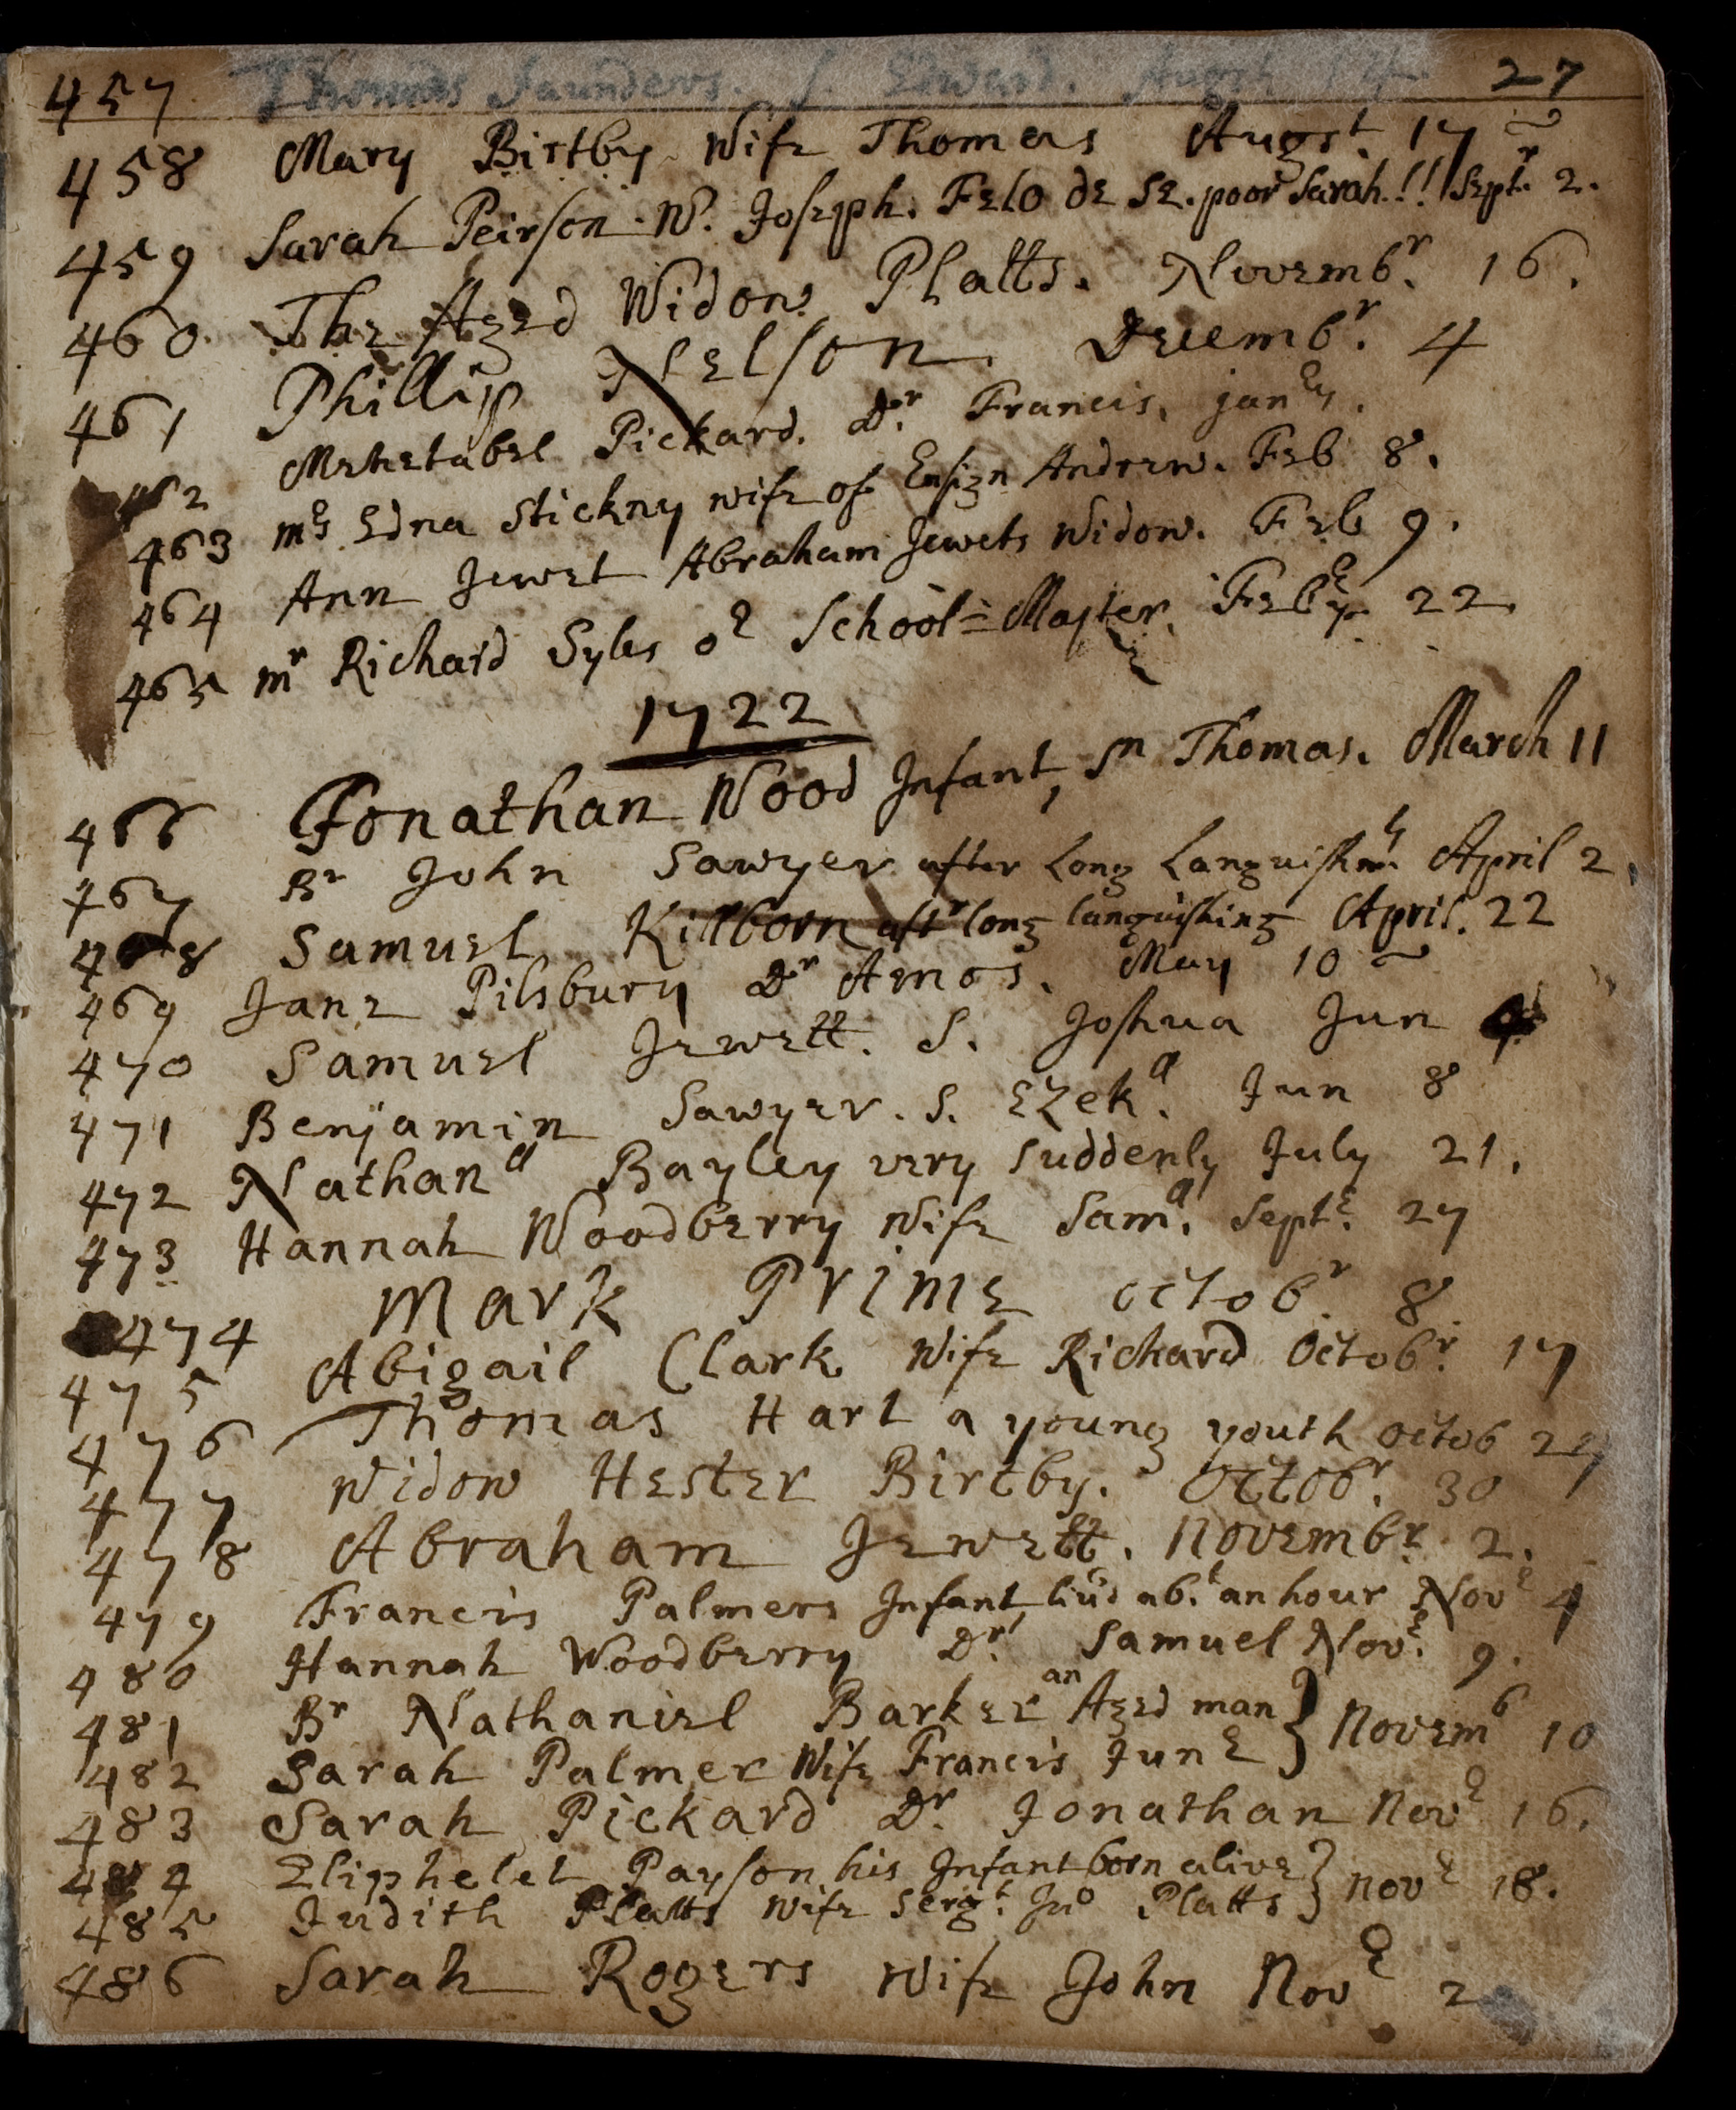 457 Thomas Saunders. S. Edward. Augst 14 27
458 Mary Birtby Wife Thomas Augst. 17
459 Sarah Peirson. W. Joseph. Felo de se. poor Sarah!! Septr. 2.
460 The Aged Widow Platts. Novembr. 16.
461 Phillip Nelson Decembr. 4
462 Mehetabel Pickard. Dr. Francis, janey.
463 mrs Edna Stickny wife of Ensign Andrew. Feb 8.
464 Ann Jewet Abraham Jewets Widow. Feb 9.
465 mr Richard Syles or School=Master. Febry 22.
1722
466 Jonathan Wood Infant, Sn Thomas. March 11
467 Br John Sawyer after Long Languishmt April 2.
468 Samuel Killborn aftr long languishing April. 22
469 Jane Pilsbury Dr Amos. May 10
470 Samuel Jewett. S. Joshua Jun
471 Benjamin Sawyer. S. Ezekll. Jun 8
472 Nathanll Bayley very suddenly July 21.
473 Hannah Woodberry Wife Samll. Septe. 27
474 Mark Prime octobr. 8
475 Abigail Clark Wife Richard Octobr. 17
476 Thomas Hart a young youth octob 27
477 Widow Hester Birtby. Octobr. 30
478 Abraham Jewett. Novembr. 2.
479 Francis Palmers Infant, liu'd abt. an hour Nove 4
480 Hannah Woodberry Dr. Samuel Nove. 9.
481 Br Nathaniel Barker an Aged man } Novemb 10
482 Sarah Palmer Wife Francis June
483 Sarah Pickard Dr. Jonathan Nove 16.
484 Eliphelet Payson his Infant born alive } nove 18.
485 Judith Platts Wife Sergt. Jno Platts
486 Sarah Rogers Wife John Nove 2